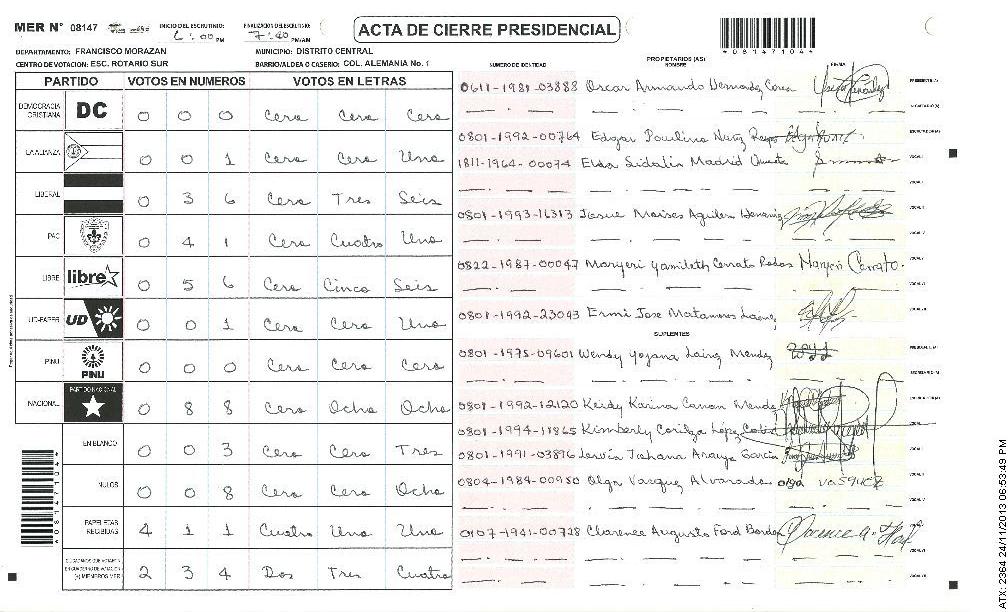 MER Nº 08147 INICIO DEL ESCRUTINIO: 6:00 PM FINALIZACION DEL ESCRUTINIO: 7:40 PM/AM
ACTA DE CIERRE PRESIDENCIAL
*08147104*
DEPARTAMENTO: FRANCISCO MORAZAN MUNICIPIO: DISTRITO CENTRAL
CENTRO DE VOTACION: ESC. ROTARIO SUR BARRIO/ALDEA O CASERIO: COL. ALEMANIA No. 1
PARTIDO VOTOS EN NUMEROS VOTOS EN LETRAS
DEMOCRACIA CRISTIANA DC 0 0 0 Cero Cero Cero
LA ALIANZA 0 0 1 Cero Cero Uno
LIBERAL 0 3 6 Cero Tres Seis
PAC 0 4 1 Cero Cuatro Uno
LIBRE libre 0 5 6 Cero Cinco Seis
UD-FAPER UD 0 0 1 Cero Cero Uno
PINU PINU 0 0 0 Cero Cero Cero
NACIONAL PARTIDO NACIONAL 0 8 8 Cero Ocho Ocho
EN BLANCO 0 0 3 Cero Cero Tres
NULOS 0 0 8 Cero Cero Ocho
PAPELETAS RECIBIDAS 4 1 1 Cuatro Uno Uno
2 3 4 Dos Tres Cuatro
*08147104*
NUMERO DE IDENTIDAD PROPIETARIOS (AS) NOMBRE FIRMA
0611-1981-03888 Oscar Armando Hernandez
0801-1992-00764 Edgar Paulino
1811-1964-00074 Elda Madrid
0801-1993-16313 Josue Moises Aguilera
0822-1987-00047 Maryeri Yamileth Cerrato Rodas Maryeri Cerrato
0801-1992-23043 Ermi Jose Matamoros
SUPLENTES
0801-1975-09601 Wendy Mendez
0801-1992-12120 Keidy Karina
0801-1994-11865 Kimberly López
0801-1991-03896 Araujo García
0804-1984-00950 Olga Vasquez Alvarado olga vasquez
0107-1941-00728 Clarence Augusto Ford Borden
ATX: 2364 24/11/2013 06:53:49 PM